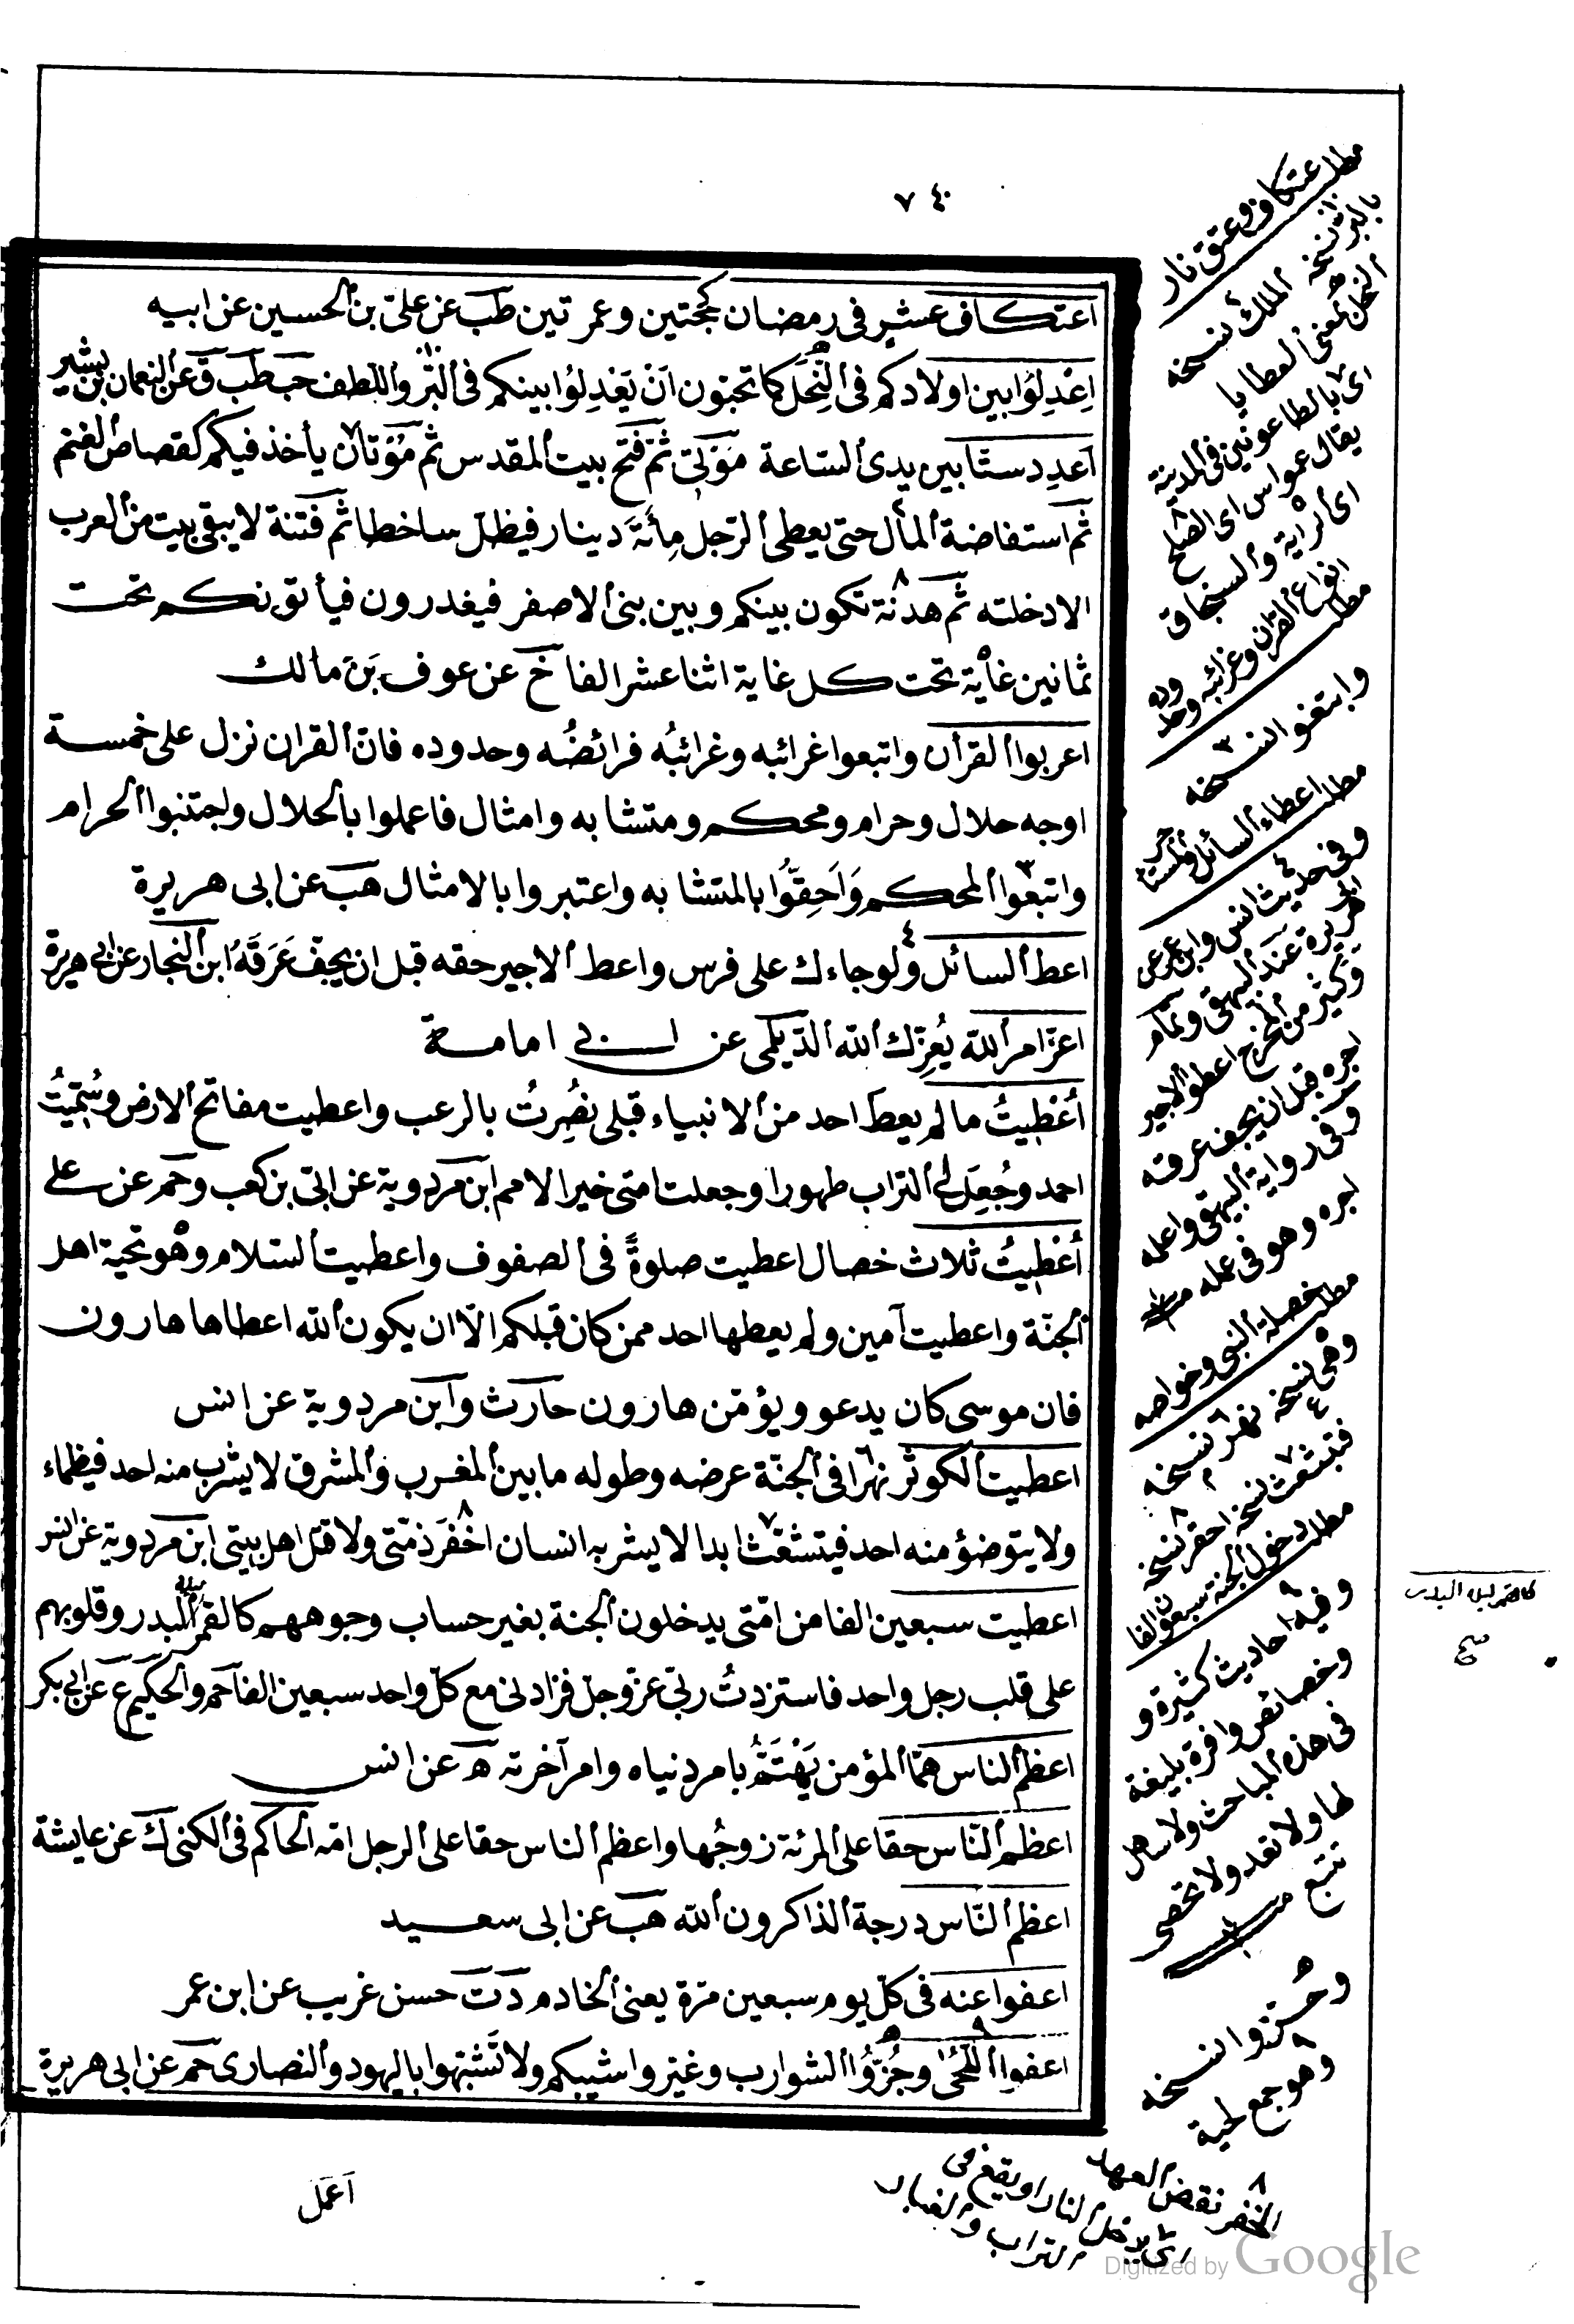 ٧٤
اعتكاف عشر فى رمضان كحجتين وعمرتين طب عن على بن الحسين عن ابيه
اِعْدِلُوا بين اولادكم فى النِّحَل كما تحبون اَنْ يَعْدِلُوا بينكم فى البِّر واللطف حب طب ق عن النعمان بن بشير
اَعدِد ستًّا بين يدى الساعة مَوتِى ثم فَتح بيت المقدس ثم مُوْتان يأخذ فيكم كقصاص الغنم
ثم استفاضة المال حتى يعطى الرّجل مِائَةَ دينار فيظل ساخطا ثم فتنة لا يبقى بيت من العرب
الا دخلته ثم هدنة تكون بينكم وبين بنى الاصفر فيغدرون فيأتونكم تحت
ثمانين غاية تحت كل غاية اثنا عشر الفا خ عن عوف بن مالك
اعربوا القرآن واتبعوا غرائبه وغرائبُه فرائضُه وحدوده فانّ القران نزل على خمسة
اوجه حلال وحرام ومحكم ومتشابه وامثال فاعملوا بالحلال واجتنبوا الحرام
واتبعوا المحكم وَاَحِقُّوا بالمتشابه واعتبروا بالامثال هب عن ابى هريرة
اعط السائل ولو جاءك على فرس واعط الاجير حقه قبل ان يجف عَرَقَهُ ابن النجار عن ابى هريرة
اعزّ امر الله يُعِزّك الله الدّيلمى عن ابى امامة
اُعْطِيتُ ما لم يعطَ احد من الانبياء قبلى نُصِرتُ بالرعب واعطيت مفاتح الارض وسُمّيتُ
احمد وجُعِلَ لى التراب طهورا وجعلت امتى خير الامم ابن مردوية عن ابىّ بن كعب وحم عن على
اُعْطِيتُ ثلاث خصال اعطيت صلوةً فى الصفوف واعطيت السّلام وهو تحية اهل
الجنّة واعطيت آمين ولم يعطها احد ممن كان قبلكم الّا ان يكون الله اعطاها هارون
فان موسى كان يدعو ويؤمّن هارون حارث وابن مردوية عن انس
اعطيت الكوثر نهرا فى الجنّة عرضه وطوله ما بين المغرب والمشرق لا يشرب منه احد فيظماء
ولا يتوضؤ منه احد فيتشعّث ابدا لا يشربه انسان اخفر ذمّتى ولا قتل اهل بيتى ابن مردوية عن انس
اعطيت سبعين الفا من امّتى يدخلون الجنة بغير حساب وجوههم كالقمر ليلة البدر وقلوبهم
على قلب رجل واحد فاستزدتُ ربّى عزّ وجلّ فزادنى مع كلّ واحد سبعين الفا حم والحكيم ع عن ابى بكر
اعظم الناس همّا المؤمن يَهْتَمُّ بامر دنياه وامر آخرته ه عن انس
اعظم النّاس حقا على المرئة زوجُها واعظم الناس حقا على الرجل امّه الحاكم فى الكنى ك عن عايشة
اعظم النّاس درجة الذاكرون الله هب عن ابى سعيد
اعفوا عنه فى كلّ يوم سبعين مرّة يعنى الخادم د ت حسن غريب عن ابن عمر
اعفوا اللُّحٰى وجُزُّوا الشوارب وغيّروا شيبكم ولا تَشَبّهوا باليهود والنصارى حم عن ابى هريرة
اَعمَل
مطلب اعتكاف وعتق نار
بالبر نسخه
الملك نسخه
النحل بمعنى العطايا
اى بالطاعونين فى المدينة
يقال عمواس اى الصلح
اى الراية والسنجاق
مطلب انواع القرآن وغرائبه وحدوده
وابتغوا النسخه
مطلب اعطاء السائل والمستأجر
وفى حديث انس وابن عمر عن
ابى هريرة عند البيهقى وتمام
وكثير من المخرج اعطوا الاجير
اجره قبل ان يجف عرقه
وفى رواية البيهقى واعلمه
اجره وهو فى عمله
مطلب خصلة النبى وخواصه
وهى نسخه
نهر نسخه
فيتشعث نسخه
احقر نسخه
مطلب دخول الجنة سبعون الفا
وفيه احاديث كثيرة و
وخصائص وافرة بليغة
فى هذه المباحث ولا ساحل
لها ولا تعد ولا تحصى
تتبع
كالقمر ليلة البدر
صح
وحسنوا نسخه
وهو جمع لحية
الاخفر نقض العهد
اى يدخل النار او يقع فى
التراب والغبار
Digitized by Google